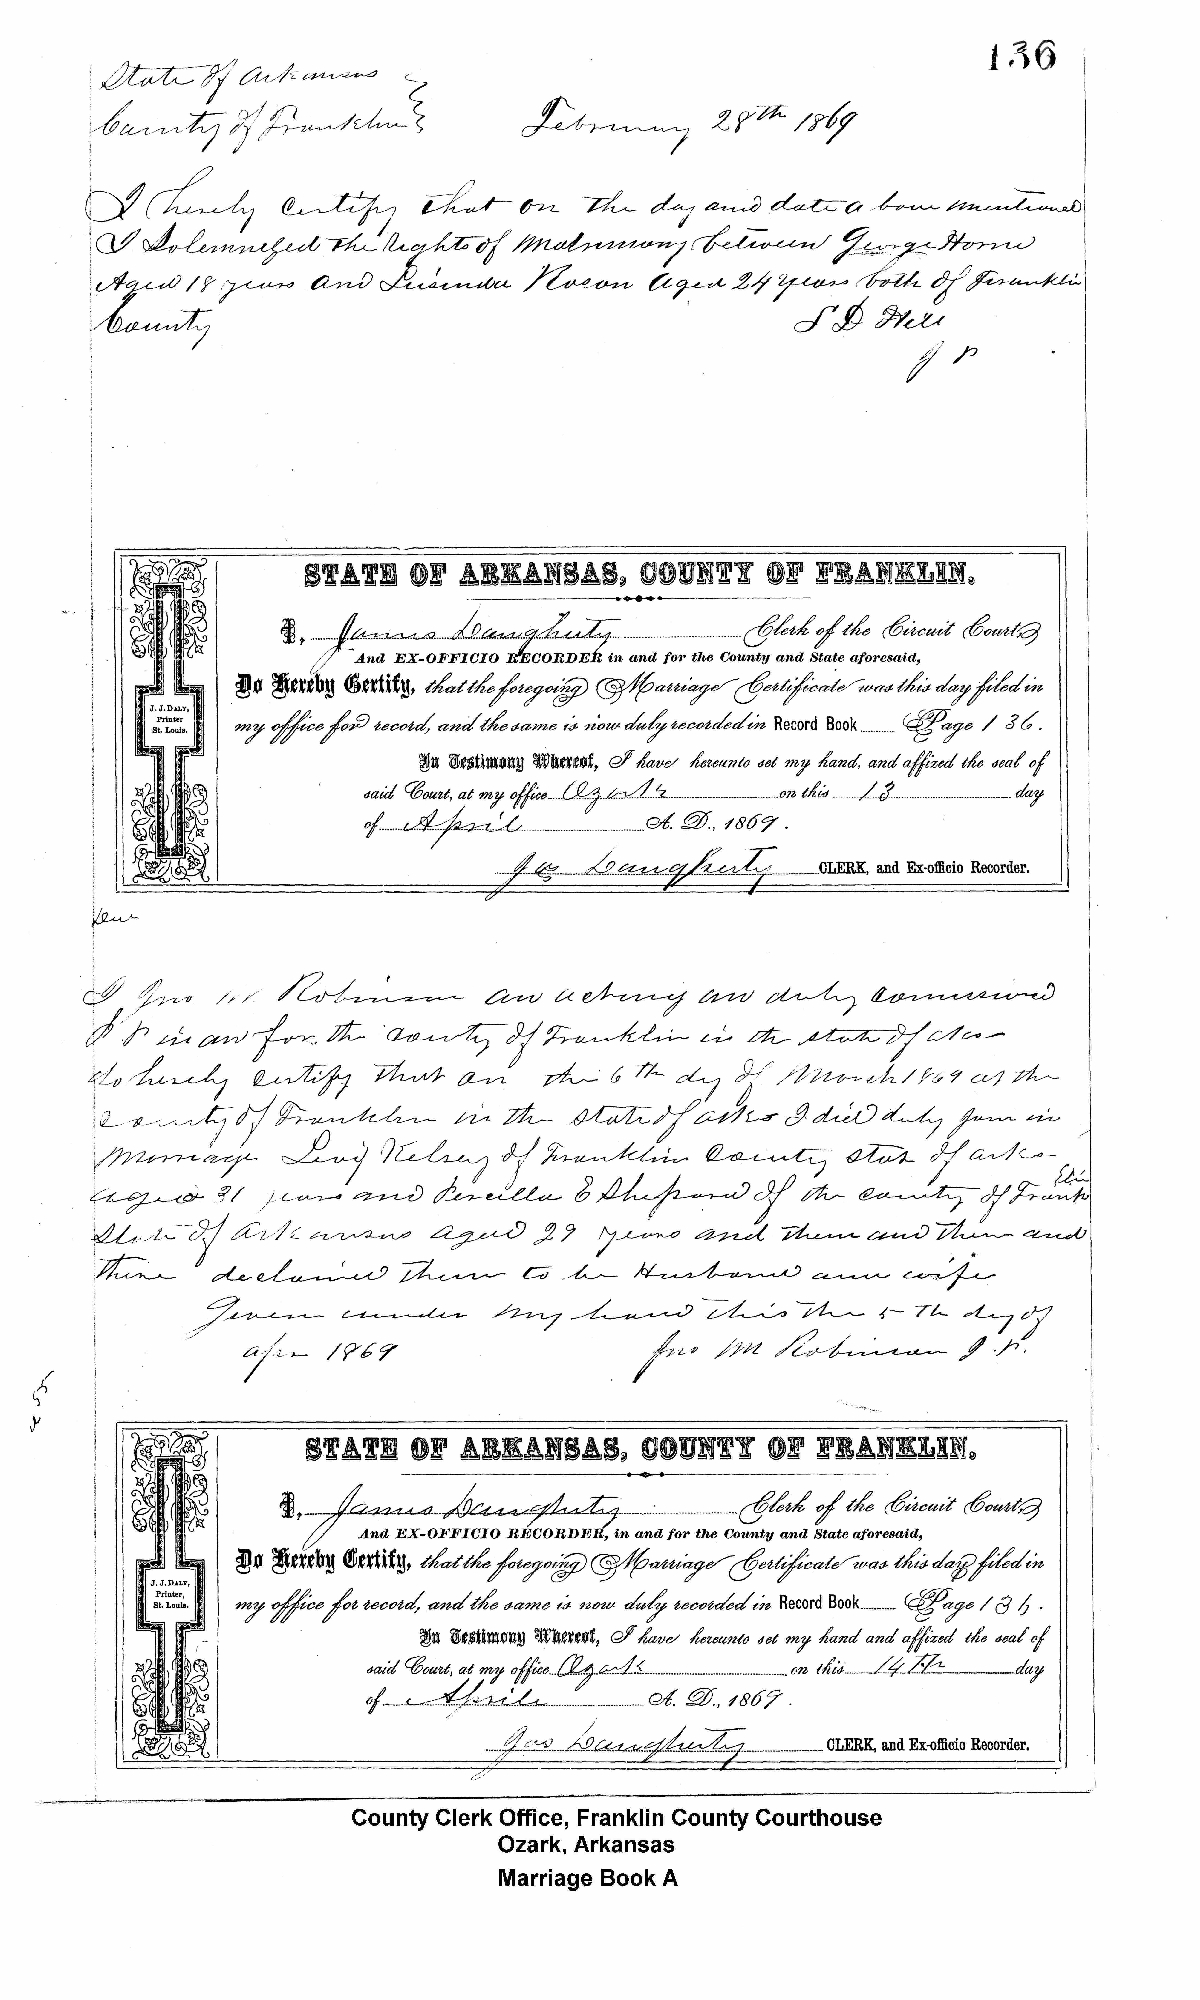 136
State of Arkansas
County of Franklin
February 28th 1869
I hereby certify that on the day and date above mentioned
I Solemnized the Rights of Matrimony between George Horne
Aged 18 years and Aged 24 years both of Franklin
County
S D Hill
J P
STATE OF ARKANSAS, COUNTY OF FRANKLIN.
I, James Daugherty Clerk of the Circuit Court
And EX-OFFICIO RECORDER in and for the County and State aforesaid,
Do Hereby Certify, that the foregoing Marriage Certificate was this day filed in
my office for record, and the same is now duly recorded in Record Book Page 136.
J. J. DALY,
Printer
St. Louis.
In Testimony Whereof, I have hereunto set my hand, and affixed the seal of
said Court, at my office Ozark on this 13 day
of April A. D., 1869.
Jas Daugherty CLERK, and Ex-officio Recorder.
I Jno M Robinson an acting an duly
J P in an for the county of Franklin in the state of Arks
do hereby certify that on the 6th day of March 1869 at the
county of Franklin in the state of arks I did duly join in
Marriage Levi Kelsey of Franklin County state of arks
aged 31 years and Percilla E Shepard of the county of Franklin
State of Arkansas aged 29 years and them and then and
there declaired them to be Husband and wife
Given under my hand this the 5th day of
Apr 1869 Jno M Robinson J. P.
STATE OF ARKANSAS, COUNTY OF FRANKLIN.
I, James Daugherty Clerk of the Circuit Court
And EX-OFFICIO RECORDER, in and for the County and State aforesaid,
Do Hereby Certify, that the foregoing Marriage Certificate was this day filed in
my office for record, and the same is now duly recorded in Record Book Page 136.
J. J. DALY,
Printer,
St. Louis.
In Testimony Whereof, I have hereunto set my hand and affixed the seal of
said Court, at my office Ozark on this 14th day
of April A. D., 1869.
Jas Daugherty CLERK, and Ex-officio Recorder.
County Clerk Office, Franklin County Courthouse
Ozark, Arkansas
Marriage Book A